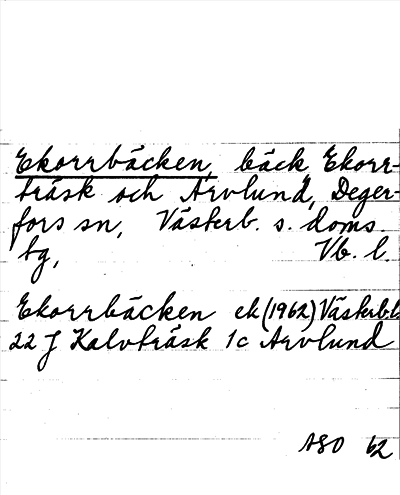 Ekorrbäcken, bäck, Ekorr-
träsk och Arvlund, Deger-
fors sn, Västerb. s. doms.
tg, Vb. l.
Ekorrbäcken ek (1962) Västerb.l.
22 J Kalvträsk 1c Arvlund
ASO 62